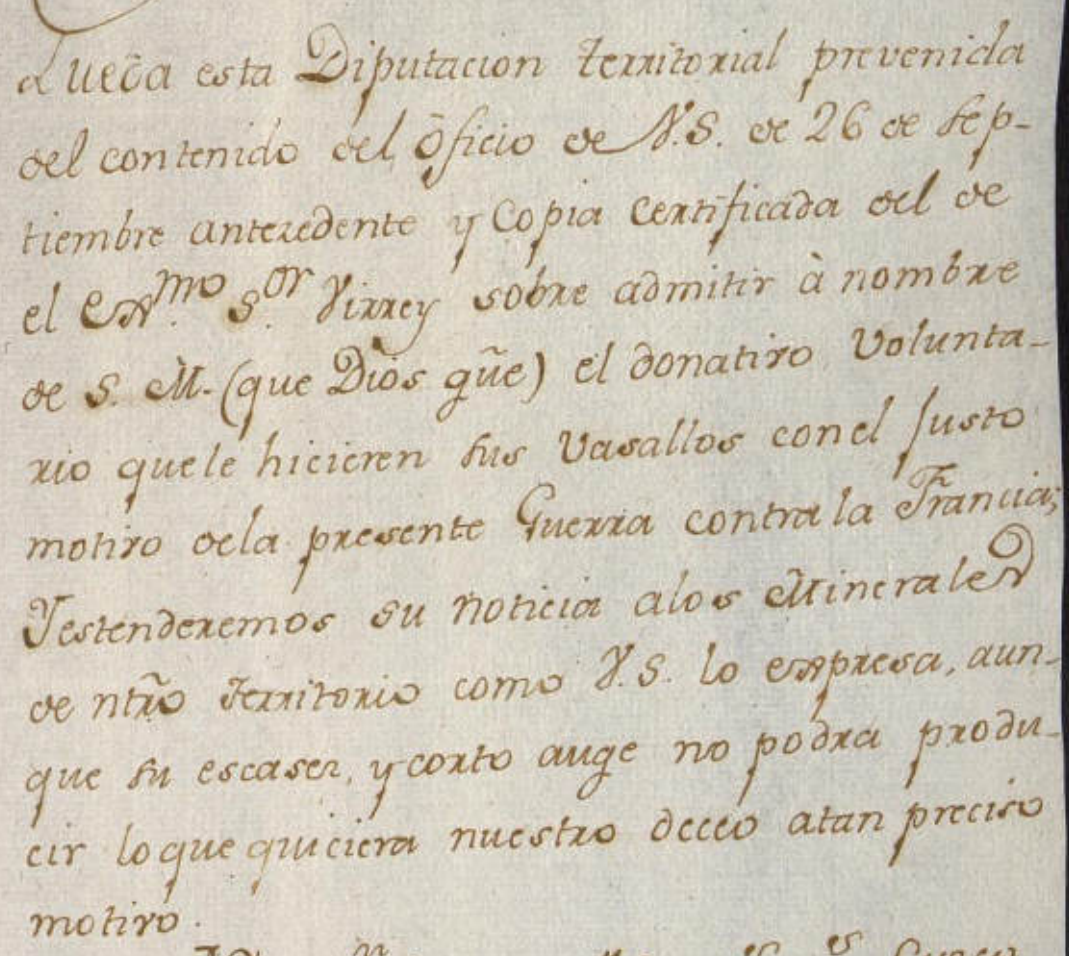 Queda esta Diputacion territorial prevenida
del contenido del, Oficio de V.S. de 26 de Sep-
tiembre antezedente y Copia Certificada del de
el Exmo. Sor. Virrey sobre admitir à nombre
de S. M. (que Dios gũe) el donativo Volunta-
rio que le hicieren sus Vasallos con el Justo
motivo dela presente Guerra contra la Francia;
Y estenderemos su noticia alos Minerales
de ntr̃o Territorio como V.S. lo expresa, aun-
que su escases, y corto auge no podra produ-
cir loque quiciera nuestro deceo atan preciso
motivo.